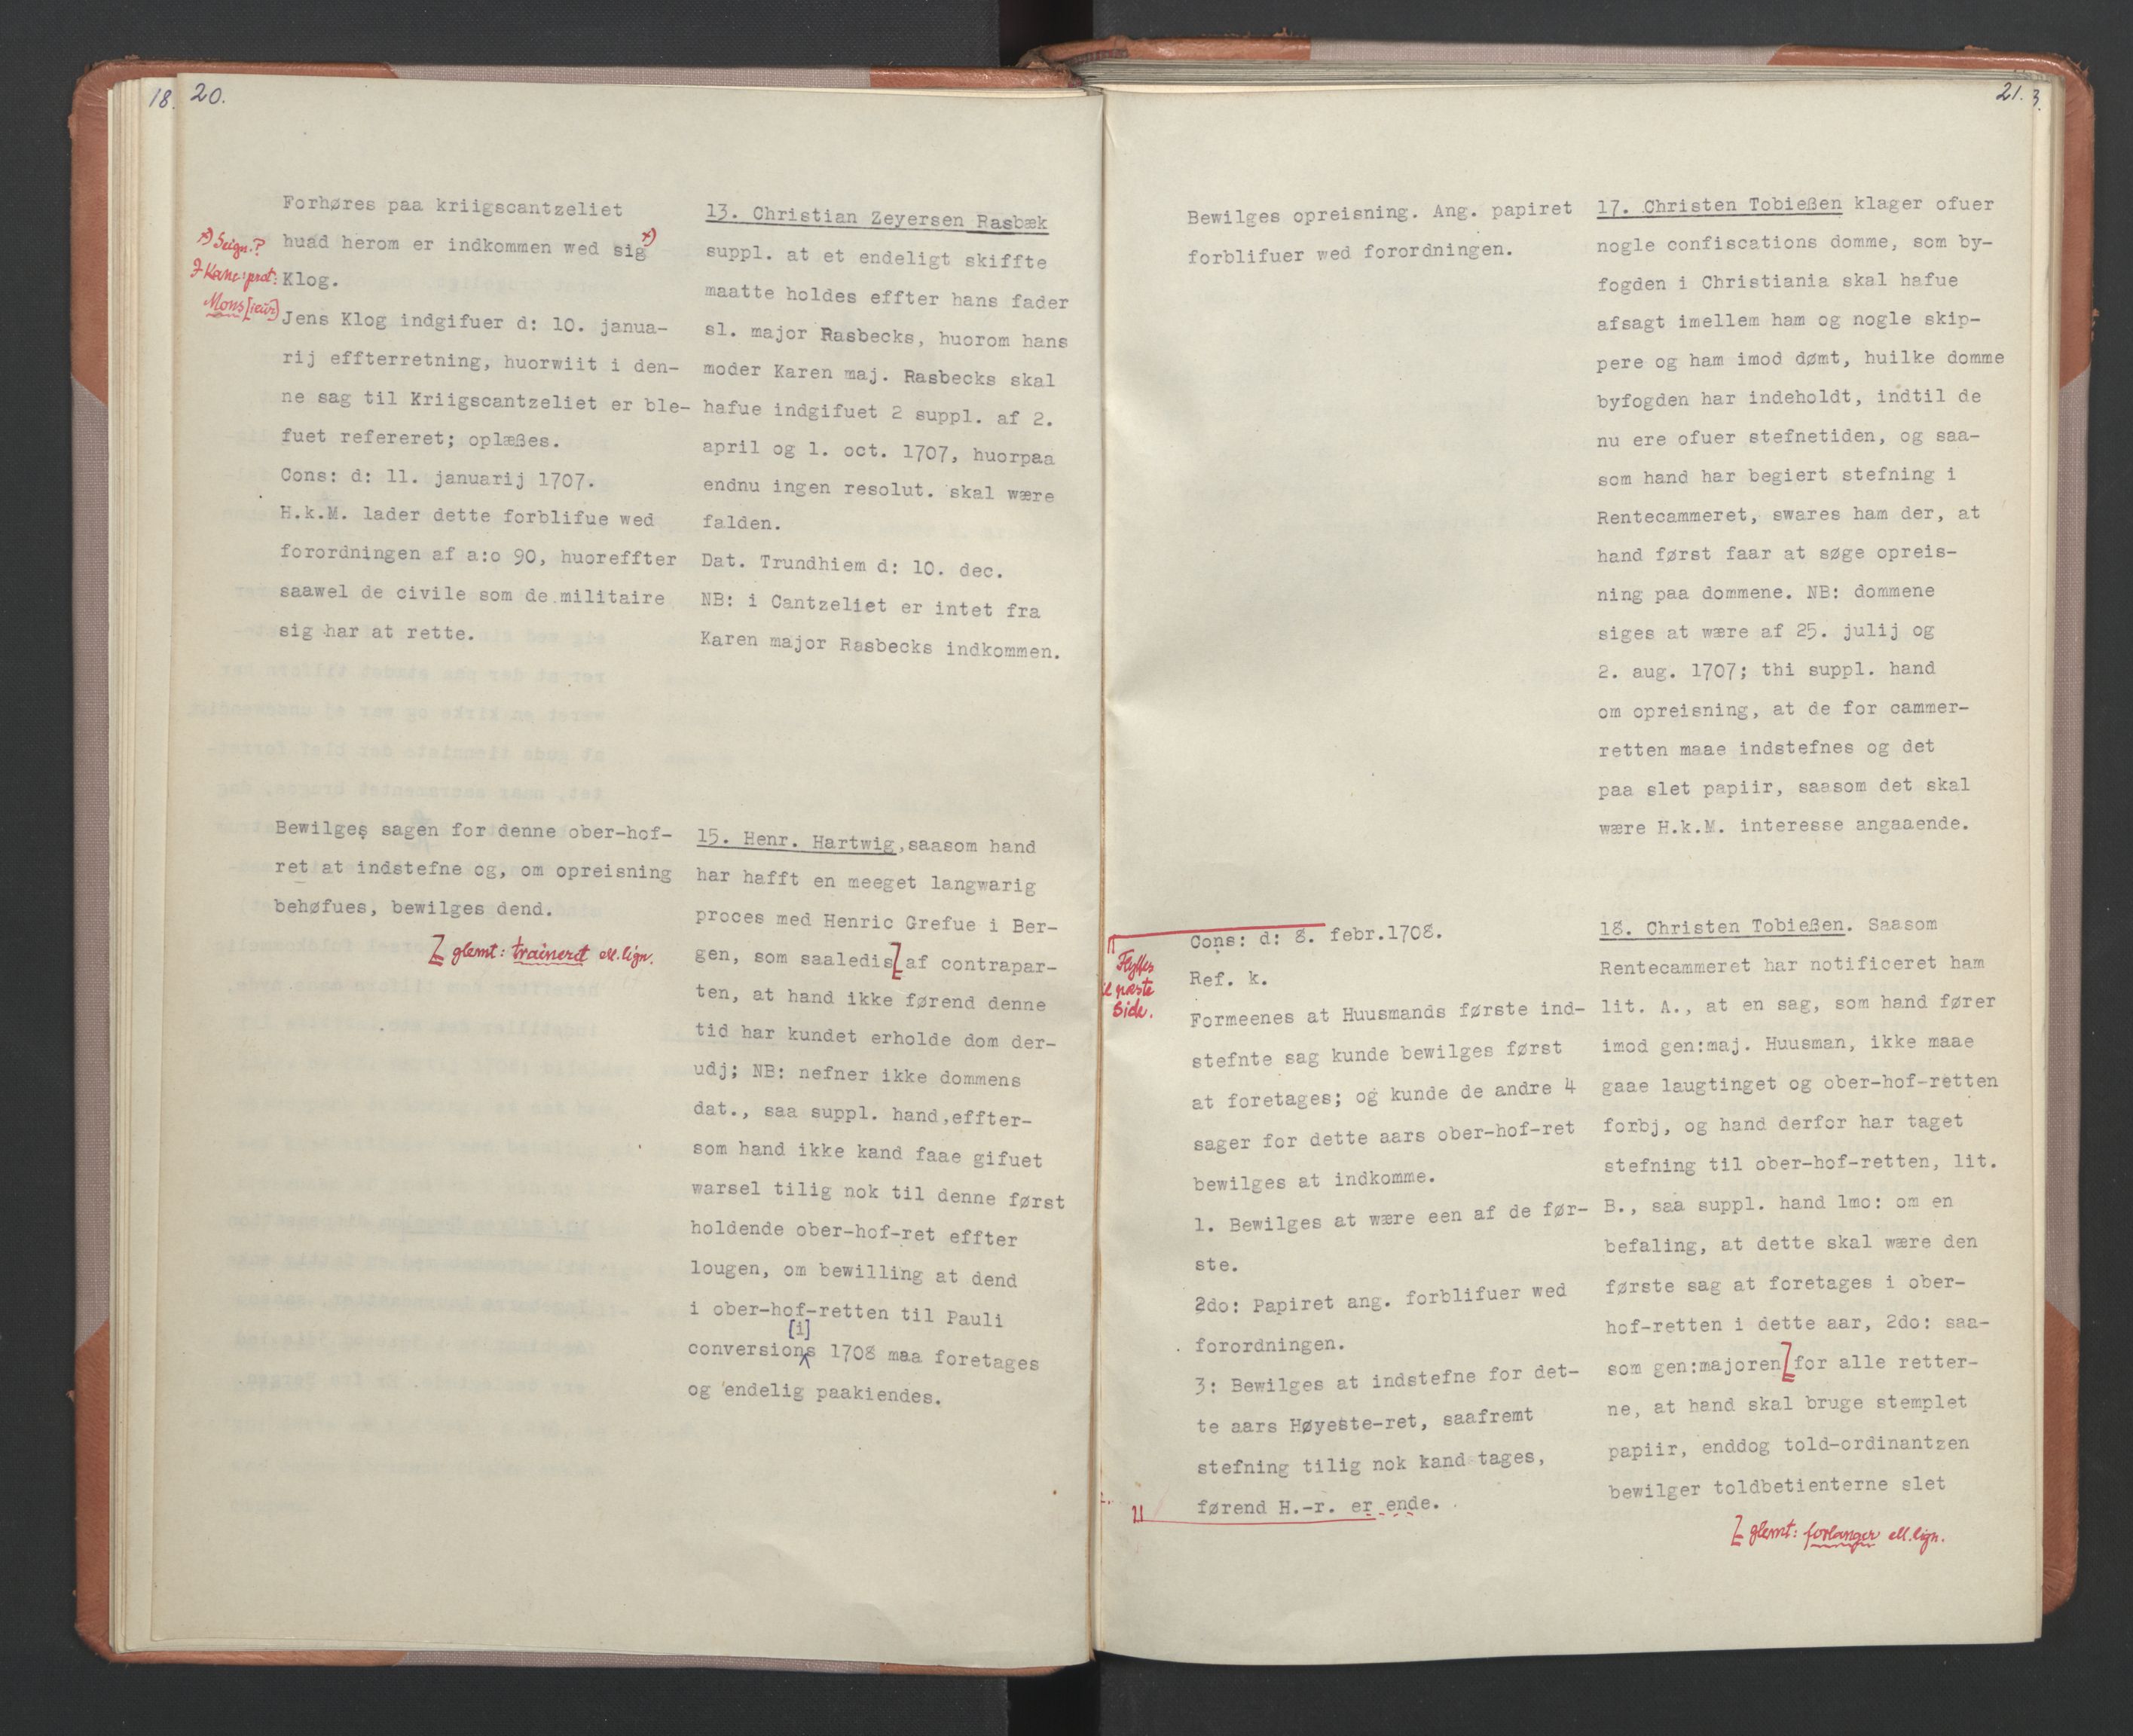 18.
20.
Forhøres paa kriigscantzeliet
huad herom er indkommen wed sig x)
Klog.
x) Seign.?
I Kanc: prot:
Mons[ieur]
Jens Klog indgifuer d: 10. janua-
rij effterretning, huorwiit i den-
ne sag til Kriigscantzeliet er ble-
fuet refereret; oplæßes.
Cons: d: 11. januarij 1707.
H.k.M. lader dette forblifue wed
forordningen af a:o 90, huoreffter
saawel de civile som de militaire
sig har at rette.
13. Christian Zeyersen Rasbæk
suppl. at et endeligt skiffte
maatte holdes effter hans fader
sl. major Rasbecks, huorom hans
moder Karen maj. Rasbecks skal
hafue indgifuet 2 suppl. af 2.
april og 1. oct. 1707, huorpaa
endnu ingen resolut. skal wære
falden.
Dat. Trundhiem d: 10. dec.
NB: i Cantzeliet er intet fra
Karen major Rasbecks indkommen.
Bewilges sagen for denne ober-hof-
ret at indstefne og, om opreisning
behøfues, bewilges dend.
[ glemt: traineret ell. lign.
15. Henr. Hartwig, saasom hand
har hafft en meeget langwarig
proces med Henric Grefue i Ber-
gen, som saaledis [ af contrapar-
ten, at hand ikke førend denne
tid har kundet erholde dom der-
udj; NB: nefner ikke dommens
dat., saa suppl. hand, effter-
som hand ikke kand faae gifuet
warsel tilig nok til denne først
holdende ober-hof-ret effter
lougen, om bewilling at dend
i ober-hof-retten til Pauli
[i]
conversions 1708 maa foretages
og endelig paakiendes.
21.
3.
Bewilges opreisning. Ang. papiret
forblifuer wed forordningen.
17. Christen Tobießen klager ofuer
nogle confiscations domme, som by-
fogden i Christiania skal hafue
afsagt imellem ham og nogle skip-
pere og ham imod dømt, huilke domme
byfogden har indeholdt, indtil de
nu ere ofuer stefnetiden, og saa-
som hand har begiert stefning i
Rentecammeret, swares ham der, at
hand først faar at søge opreis-
ning paa dommene. NB: dommene
siges at wære af 25. julij og
2. aug. 1707; thi suppl. hand
om opreisning, at de for cammer-
retten maae indstefnes og det
paa slet papiir, saasom det skal
wære H.k.M. interesse angaaende.
Flyttes
til næste
Side.
Cons: d: 8. febr.1708.
Ref. k.
Formeenes at Huusmands første ind-
stefnte sag kunde bewilges først
at foretages; og kunde de andre 4
sager for dette aars ober-hof-ret
bewilges at indkomme.
1. Bewilges at wære een af de før-
ste.
2do: Papiret ang. forblifuer wed
forordningen.
3: Bewilges at indstefne for det-
te aars Høyeste-ret, saafremt
stefning tilig nok kand tages,
førend H.-r. er ende.
18. Christen Tobießen. Saasom
Rentecammeret har notificeret ham
lit. A., at en sag, som hand fører
imod gen:maj. Huusman, ikke maae
gaae laugtinget og ober-hof-retten
forbj, og hand derfor har taget
stefning til ober-hof-retten, lit.
B., saa suppl. hand 1mo: om en
befaling, at dette skal wære den
første sag at foretages i ober-
hof-retten i dette aar, 2do: saa-
som gen:majoren [ for alle retter-
ne, at hand skal bruge stemplet
papiir, enddog told-ordinantzen
bewilger toldbetienterne slet
[ glemt: forlanger ell. lign.